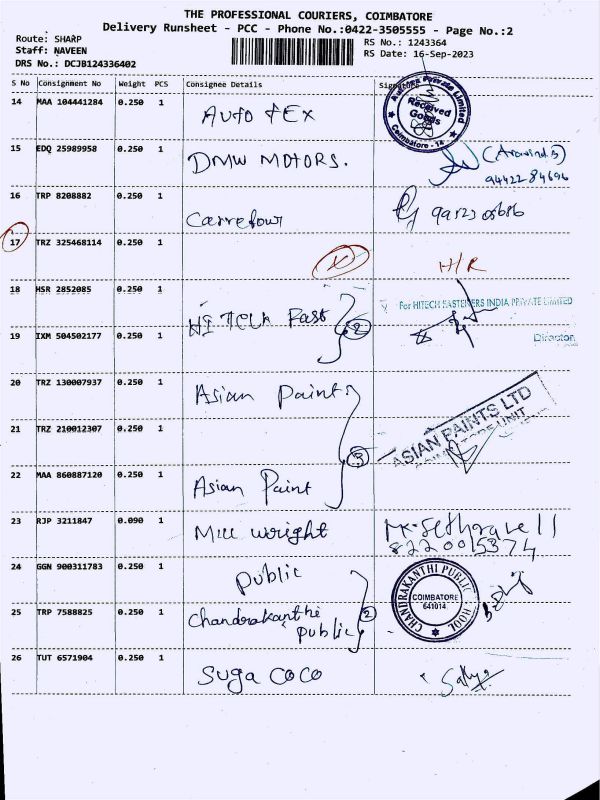 THE PROFESSIONAL COURIERS, COIMBATORE
Delivery Runsheet - PCC - Phone No.:0422-3505555 - Page No.:2
Route: SHARP
RS No.: 1243364
Staff: NAVEEN
RS Date: 16-Sep-2023
DRS No.: DCJB124336402
S No Consignment No Weight PCS Consignee Details Signature
14 MAA 104441284 0.250 1 AUTO TEX
Private Limited
Received
Goods
Coimbatore - 14
15 EDQ 25989958 0.250 1 DMW MOTORS. (Aravind.S)
9442284696
16 TRP 8208882 0.250 1 Carrefour
17 TRZ 325468114 0.250 1 X H/R
18 HSR 2852085 0.250 1 For HITECH FASTENERS INDIA PRIVATE LIMITED
HI TECH Fast 2
19 IXM 504502177 0.250 1 Director
20 TRZ 130007937 0.250 1 Asian Paint
21 TRZ 210012307 0.250 1 ASIAN PAINTS LTD
UNIT
3
22 MAA 860887120 0.250 1 Asian Paint
23 RJP 3211847 0.090 1 Mill wright
8220015374
24 GGN 900311783 0.250 1 Public
CHANDRAKANTHI PUBLIC SCHOOL
COIMBATORE
641014
25 TRP 7588825 0.250 1 Chandrakanthi Public 2
26 TUT 6571904 0.250 1 Suga COCO